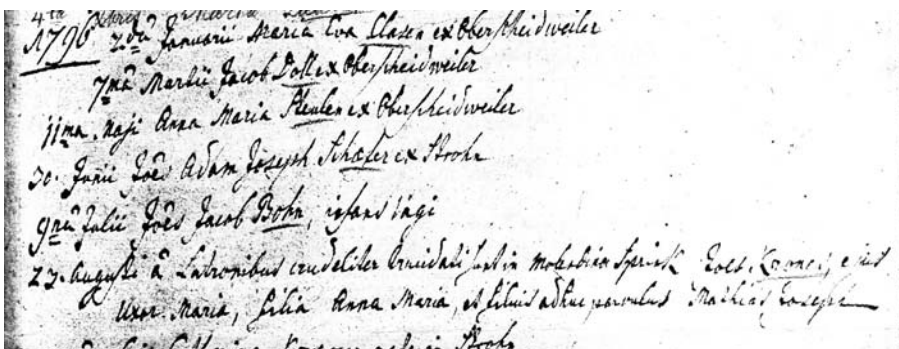 4ta
1796 2da Januarii Maria Eva Clasen ex Oberscheidweiler
7ma Martii Jacob Doll ex Oberscheidweiler
11ma Maji Anna Maria Steulen ex Oberscheidweiler
30. Junii Joês Adam Joseph Schæfer ex Strohn
9na Julii Joês Jacob Bohn, infans vagi
23. Augusti à Latronibus crudeliter trucidati sunt in Sprink Joês Krones, ejus
Uxor Maria, filia Anna Maria, et filius adhuc parvulus Mathias Joseph
in Strohn